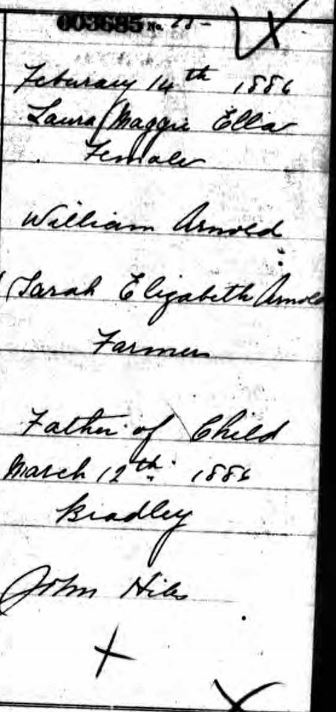 003685 No. 28-
Feburary 14th 1886
Laura Maggie Ella
Female
William Arnold
Sarah Elizabeth Arnold
Farmer
Father of Child
March 12th 1886
Bradley
John Hiles